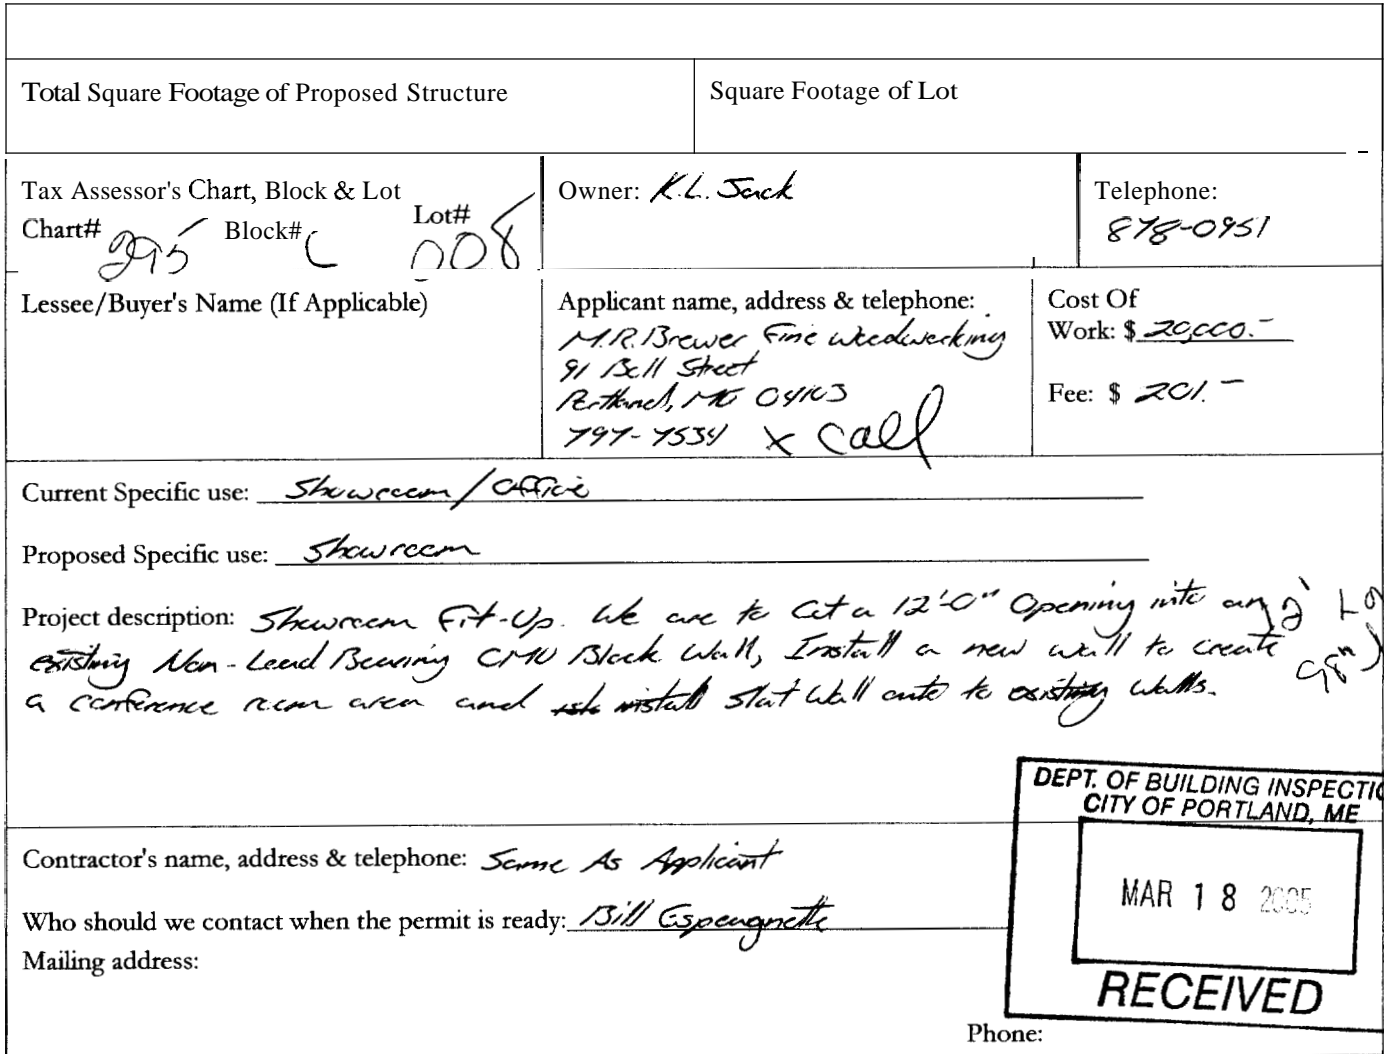 Total Square Footage of Proposed Structure
Square Footage of Lot
Tax Assessor's Chart, Block & Lot
Chart# 295 Block# C Lot# 008
Owner: K.L. Jack
Telephone:
878-0951
Lessee/Buyer's Name (If Applicable)
Applicant name, address & telephone:
M.R. Brewer Fine Woodworking
91 Bell Street
Portland, ME 04103
797-7534 x Call
Cost Of
Work: $ 20,000.-
Fee: $ 201.-
Current Specific use: Showroom/Office
Proposed Specific use: Showroom
Project description: Showroom Fit-Up. We are to Cut a 12'-0" Opening into an
existing Non-Load Bearing CMU Block Wall, Install a new wall to create
a conference room area and install Slat Wall onto to existing walls.
DEPT. OF BUILDING INSPECTIO
CITY OF PORTLAND, ME
MAR 18 2005
RECEIVED
Contractor's name, address & telephone: Same As Applicant
Who should we contact when the permit is ready: Bill Espeugnette
Mailing address:
Phone: